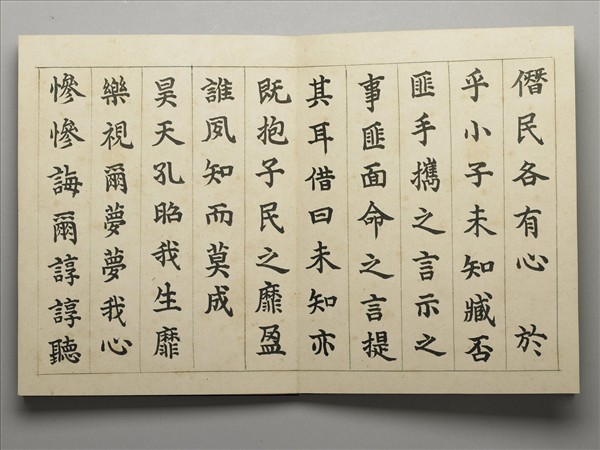 僭民各有心 於
乎小子未知臧否
匪手攜之言示之
事匪面命之言提
其耳借曰未知亦
既抱子民之靡盈
誰夙知而莫成
昊天孔昭我生靡
樂視爾夢夢我心
慘慘誨爾諄諄聽